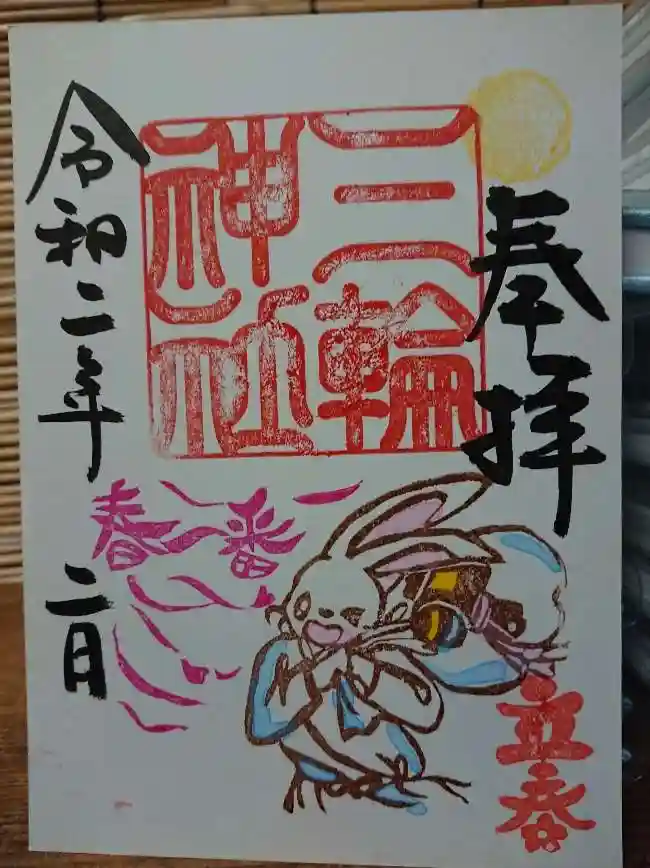 奉拝
三輪
神社
令和二年 二日
春一番
立春